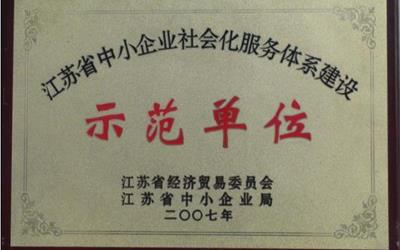 江苏省中小企业社会化服务体系建设
示范单位
江苏省经济贸易委员会
江苏省中小企业局
二〇〇七年